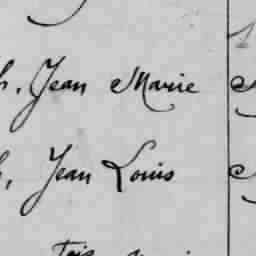 h. Jean Marie
h, Jean Louis